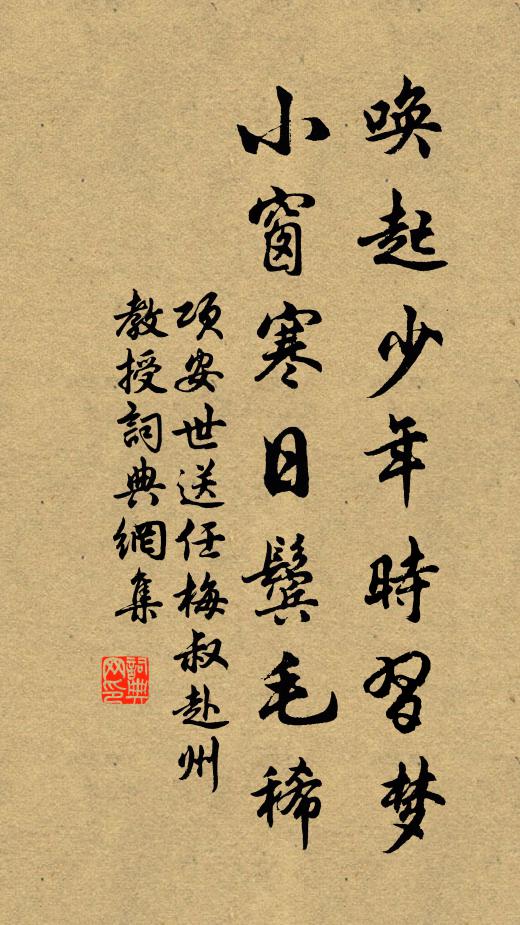 唤起少年時習梦
小窗寒日鬓毛稀
项安世送任梅叔赴州
教授詞典網集
詞典网印